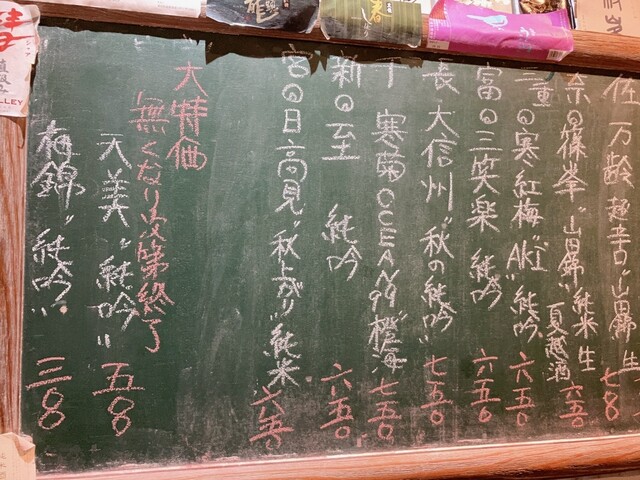 佐の万齢 超辛口"山田錦"生 七八〇
奈の篠峯"山田錦"純米生 夏越酒 六五〇
三重の寒紅梅"AKi"純吟 六五〇
富の三笑楽 純吟 六五〇
長の大信州"秋の純吟" 七五〇
千の寒菊OCEAN99"橙海" 七五〇
新の至 純吟 六五〇
宮の日高見"秋上がり"純米 六五〇
大特価
無くなり次第終了
天美"純吟" 五八〇
梅錦"純吟" 三八〇